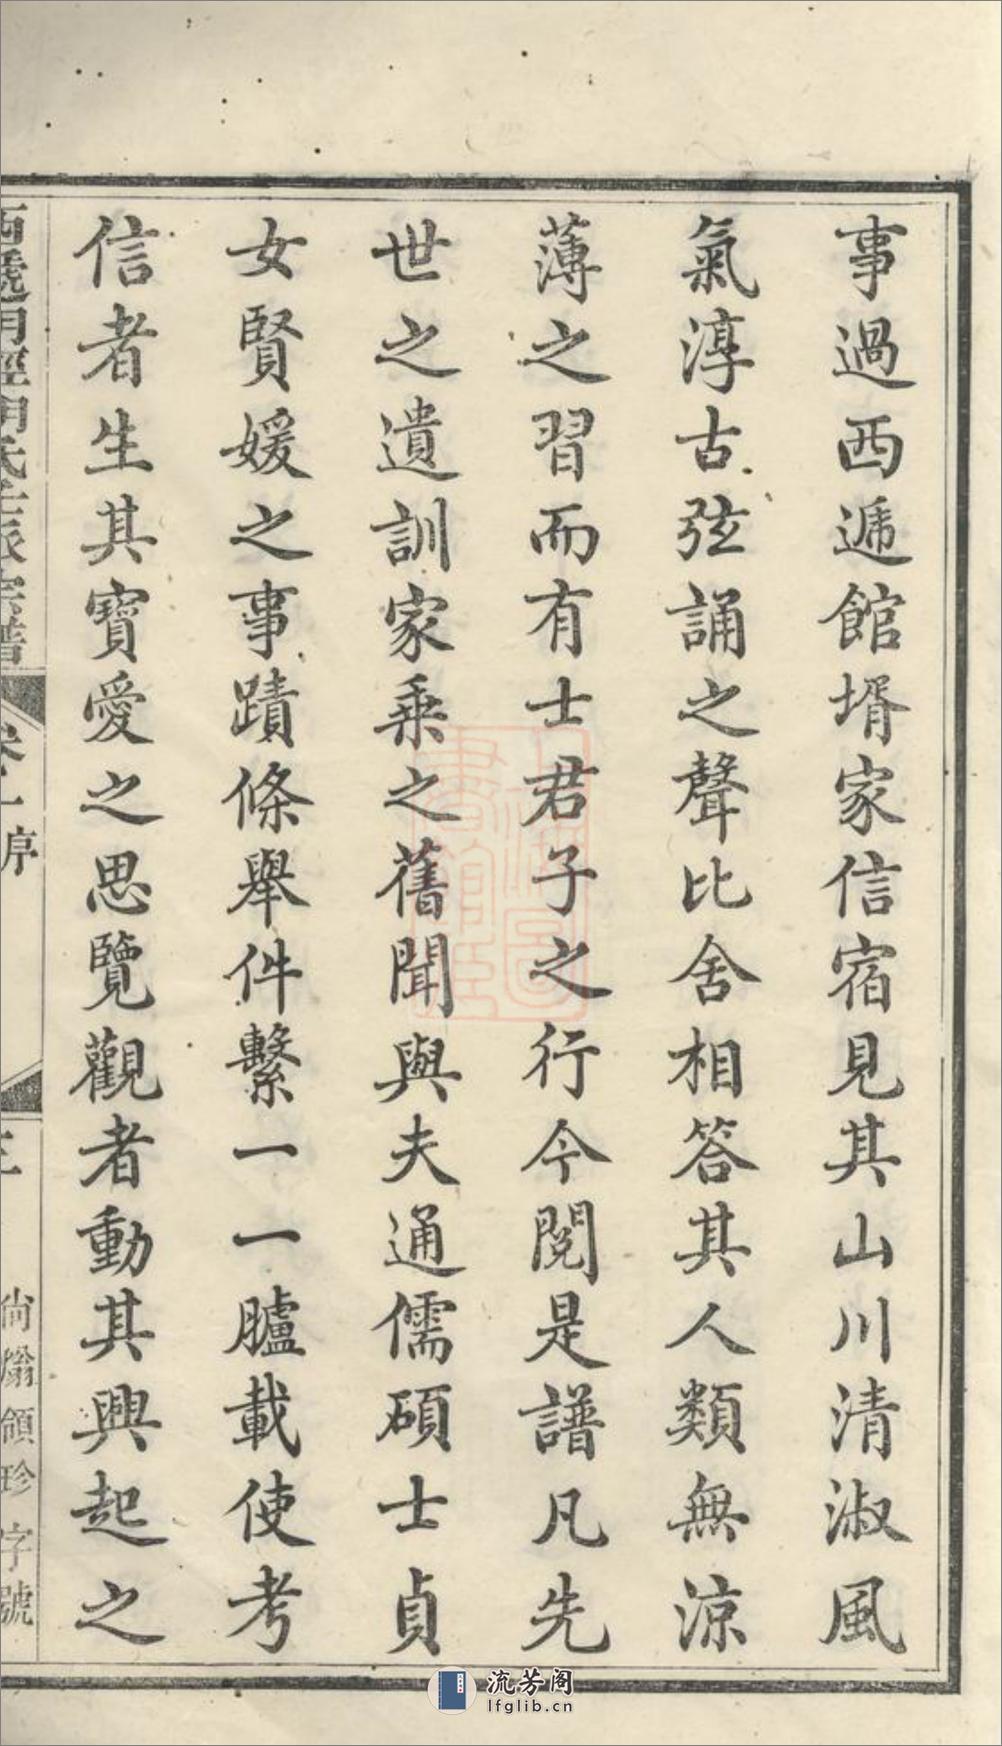 事過西遞館壻家信宿見其山川清淑風
氣淳古弦誦之聲比舍相答其人類無涼
薄之習而有士君子之行今閱是譜凡先
世之遺訓家乘之舊聞與夫通儒碩士貞
女賢媛之事蹟條舉件繫一一臚載使考
信者生其寶愛之思覽觀者動其興起之
西遞明經胡氏壬派宗譜
卷一序
三
尚 領珍字號
流芳阁
lfglib.cn